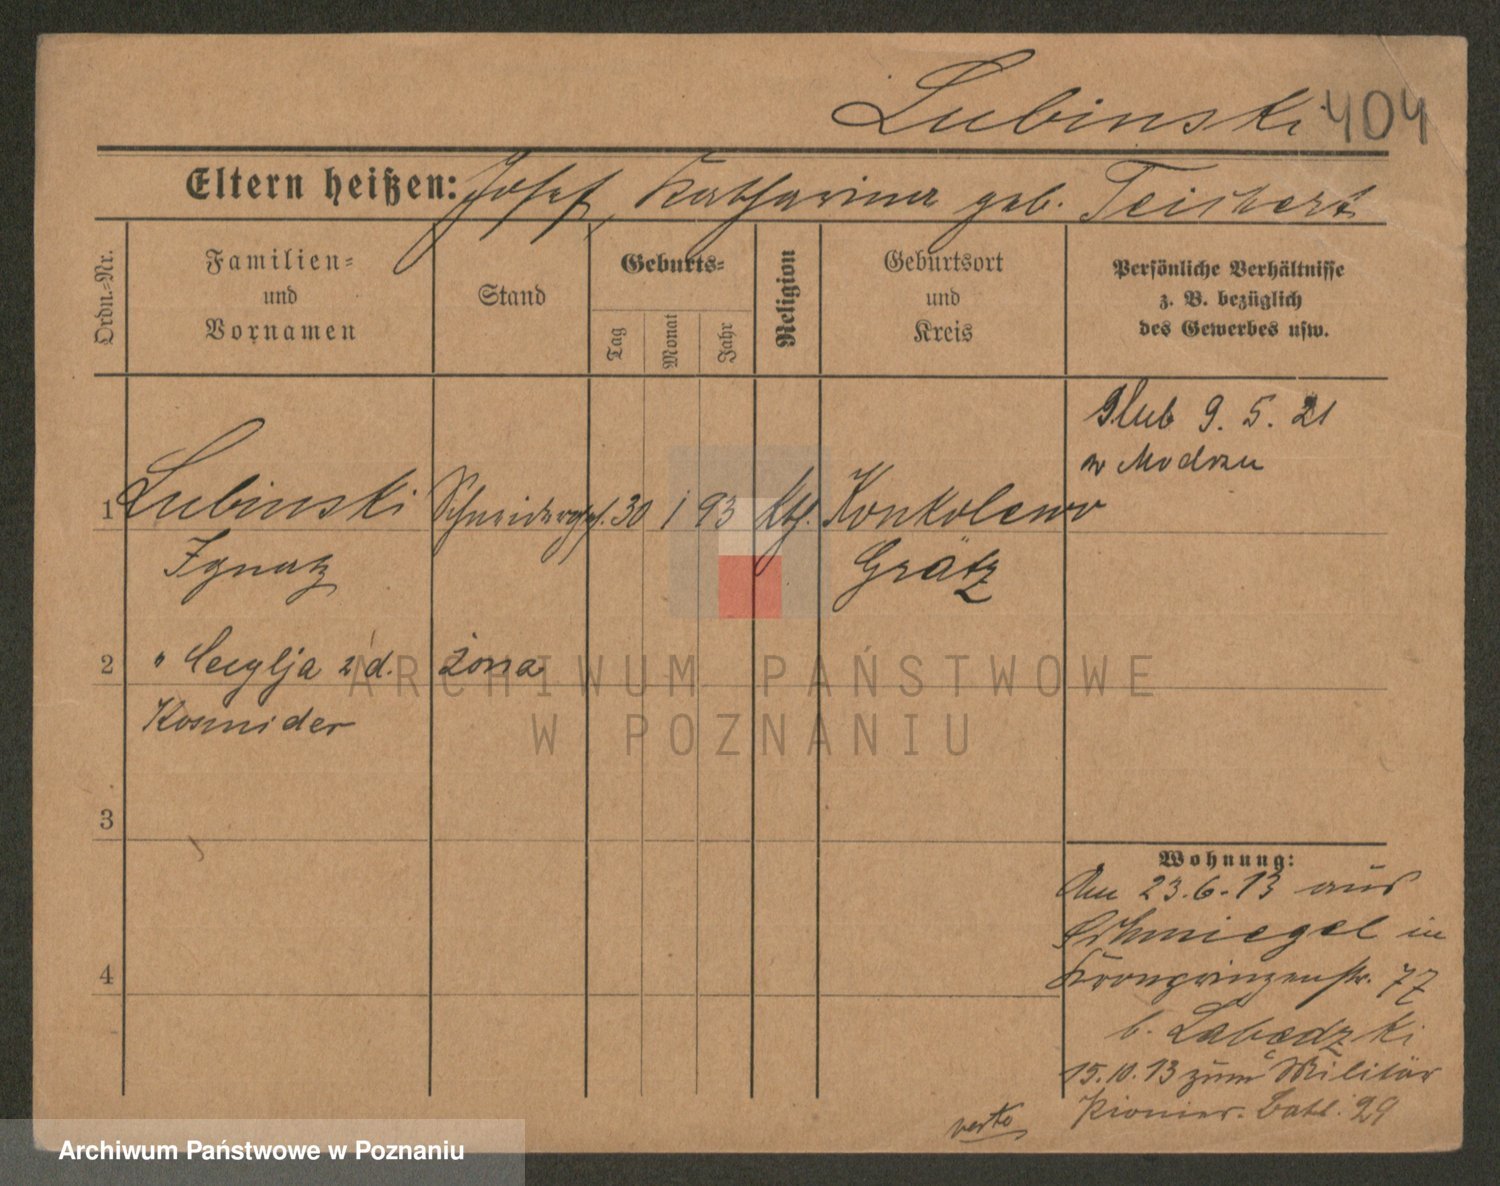 Lubinski 404
Eltern heißen: Josef, Katharina geb. Teichert
Ordn.-Nr.
Familien-
und
Vornamen
Stand
Geburts-
Tag
Monat
Jahr
Religion
Geburtsort
und
Kreis
Persönliche Verhältnisse
z. B. bezüglich
des Gewerbes usw.
Ślub 9. 5. 21
w Modrzu
1 Lubinski Schneiderges. 30 1 93 kth. Konkolewo
Ignatz Grätz
2 " Cecylja zd. żona
Kosmider
3
4
Wohnung:
Am 23.6.13 aus
Schmiegel in
Kronprinzenstr. 77
b. Labedzki
15.10.13 zum Militär
Pionier. Batl. 29
ARCHIWUM PAŃSTWOWE
W POZNANIU
Archiwum Państwowe w Poznaniu